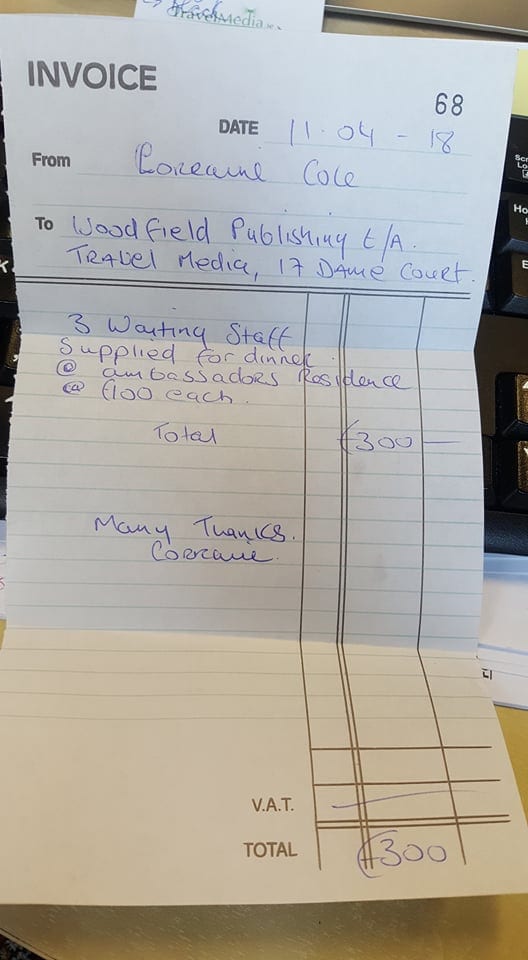 TravelMedia.ie
INVOICE
68
DATE 11.04-18
From Lorraine Cole
To Woodfield Publishing t/A.
TRAVEL Media, 17 DAME COURT.
3 Waiting Staff
Supplied for dinner
@ ambassadors Residence
@ €100 each.
Total €300 —
Many Thanks.
Lorraine.
V.A.T. —
TOTAL €300